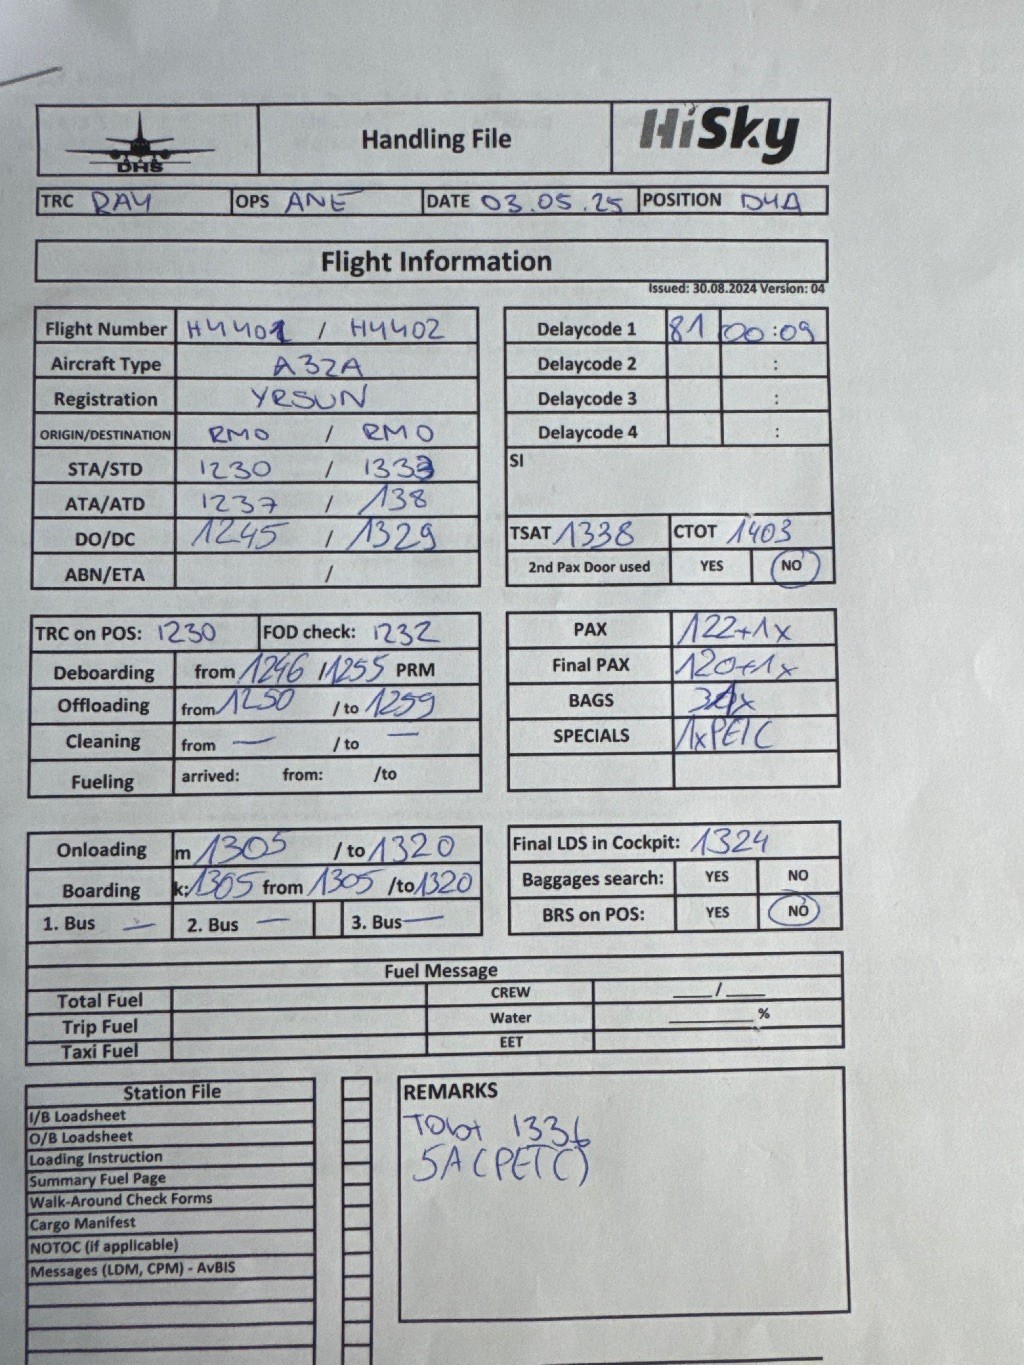 DHS
Handling File
HiSky
TRC RAY OPS ANE DATE 03.05.25 POSITION D4A
Flight Information
Issued: 30.08.2024 Version: 04
Flight Number H4401 / H4402
Aircraft Type A32A
Registration YRSUN
ORIGIN/DESTINATION RMO / RMO
STA/STD 1230 / 1333
ATA/ATD 1237 / 138
DO/DC 1245 / 1329
ABN/ETA /
Delaycode 1 81 00:09
Delaycode 2 :
Delaycode 3 :
Delaycode 4 :
SI
TSAT 1338 CTOT 1403
2nd Pax Door used YES NO
TRC on POS: 1230 FOD check: 1232
Deboarding from 1246 / 1255 PRM
Offloading from 1250 / to 1259
Cleaning from — / to —
Fueling arrived: from: /to
PAX 122+1x
Final PAX 120+1x
BAGS
SPECIALS 1xPETC
Onloading m 1305 / to 1320
Boarding k: 1305 from 1305 /to 1320
1. Bus — 2. Bus — 3. Bus —
Final LDS in Cockpit: 1324
Baggages search: YES NO
BRS on POS: YES NO
Fuel Message
Total Fuel CREW ___/___
Trip Fuel Water ________ %
Taxi Fuel EET
Station File
I/B Loadsheet
O/B Loadsheet
Loading Instruction
Summary Fuel Page
Walk-Around Check Forms
Cargo Manifest
NOTOC (if applicable)
Messages (LDM, CPM) - AvBIS
REMARKS
Tobt 1336
5A (PETC)